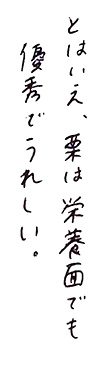 とはいえ、栗は栄養面でも
優秀でうれしい。